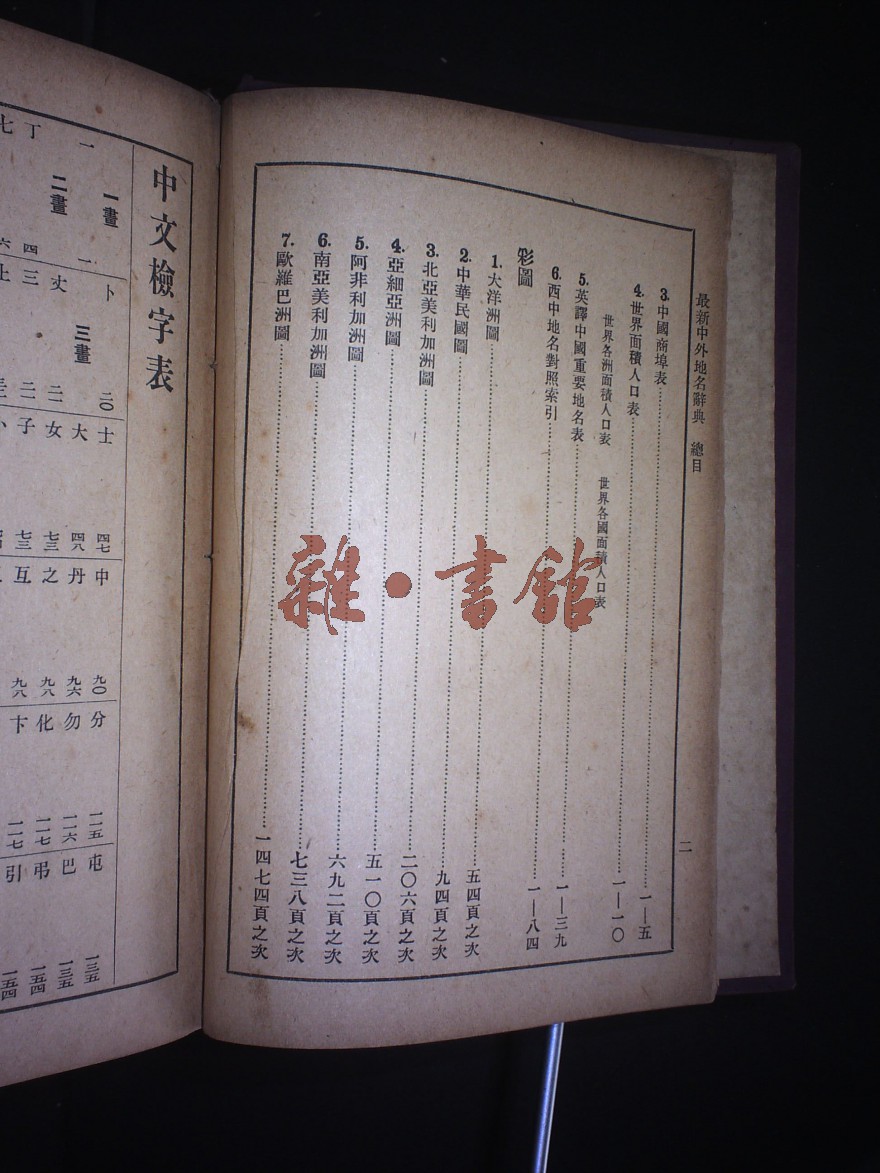 最新中外地名辭典　總目
二
3. 中國商埠表……一—五
4. 世界面積人口表……一—一〇
世界各洲面積人口表　世界各國面積人口表
5. 英譯中國重要地名表……一—三九
6. 西中地名對照索引……一—八四
彩圖
1. 大洋洲圖……五四頁之次
2. 中華民國圖……九四頁之次
3. 北亞美利加洲圖……二〇六頁之次
4. 亞細亞洲圖……五一〇頁之次
5. 阿非利加洲圖……六九二頁之次
6. 南亞美利加洲圖……七三八頁之次
7. 歐羅巴洲圖……一四七四頁之次
雜·書館
中文檢字表
一畫
一　一
二畫
丁
七
卜　二〇
三畫
丈　二一
三　二二
上
士　四七
大　四八
女　七三
子　七三
小
中　九〇
丹　九六
之　九八
互　九八
分　一一五
勿　一一六
化　一一七
卞　一一七
屯　一三五
巴　一三五
弔　一五四
引　一五四